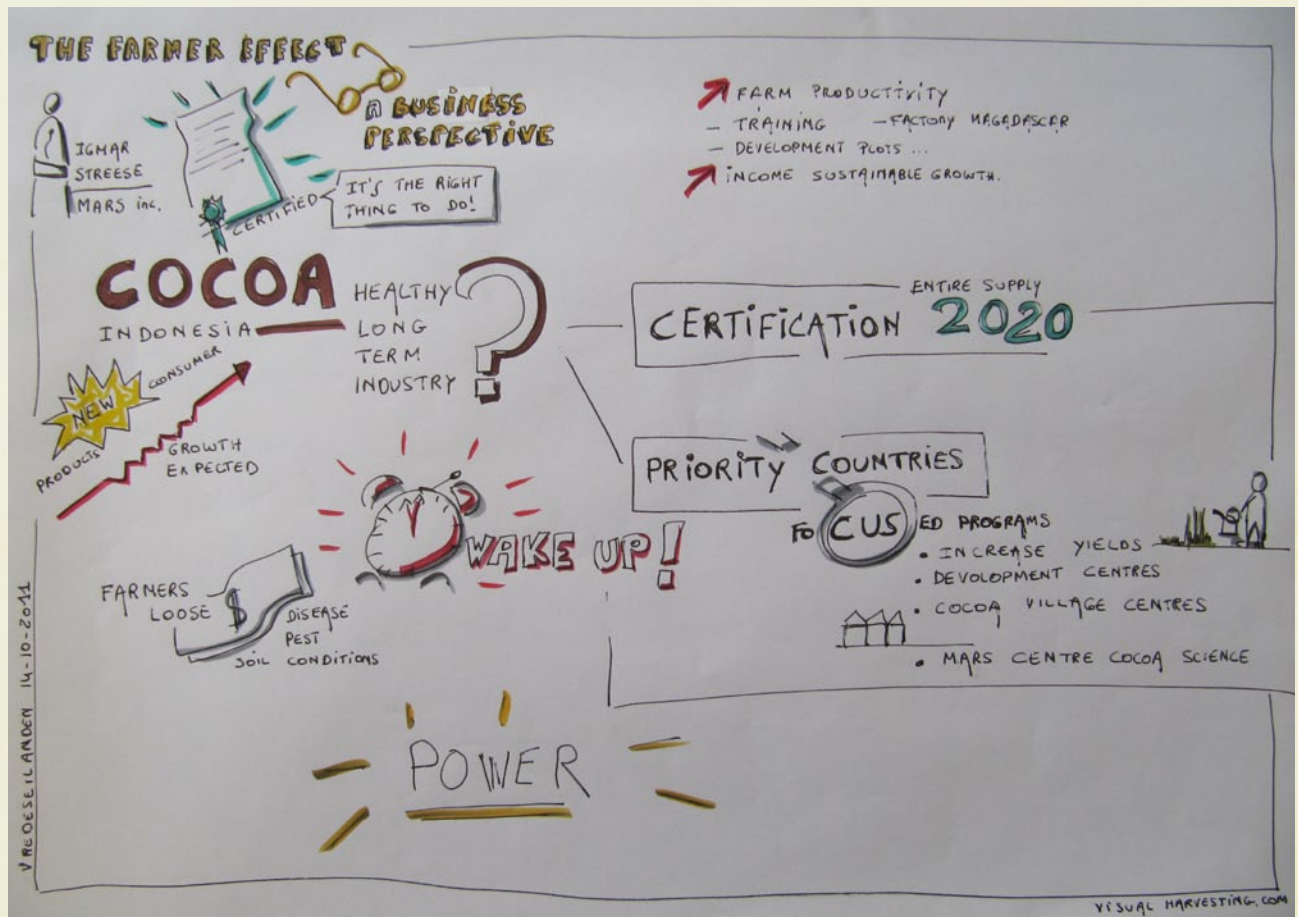 THE FARMER EFFECT
A BUSINESS
PERSPECTIVE
IGMAR
STREESE
MARS inc.
CERTIFIED
IT'S THE RIGHT
THING TO DO!
FARM PRODUCTIVITY
- TRAINING - FACTORY MAGADASCAR
- DEVELOPMENT PLOTS ...
INCOME SUSTAINABLE GROWTH.
COCOA
INDONESIA
HEALTHY
LONG
TERM
INDUSTRY
?
CERTIFICATION
ENTIRE SUPPLY
2020
NEW
CONSUMER
PRODUCTS
GROWTH
EXPECTED
PRIORITY COUNTRIES
FOCUSED PROGRAMS
• INCREASE YIELDS
• DEVOLOPMENT CENTRES
• COCOA VILLAGE CENTRES
• MARS CENTRE COCOA SCIENCE
WAKE UP!
FARMERS
LOOSE $
DISEASE
PEST
SOIL CONDITIONS
POWER
VREDESEILANDEN 14-10-2011
VISUAL HARVESTING.COM